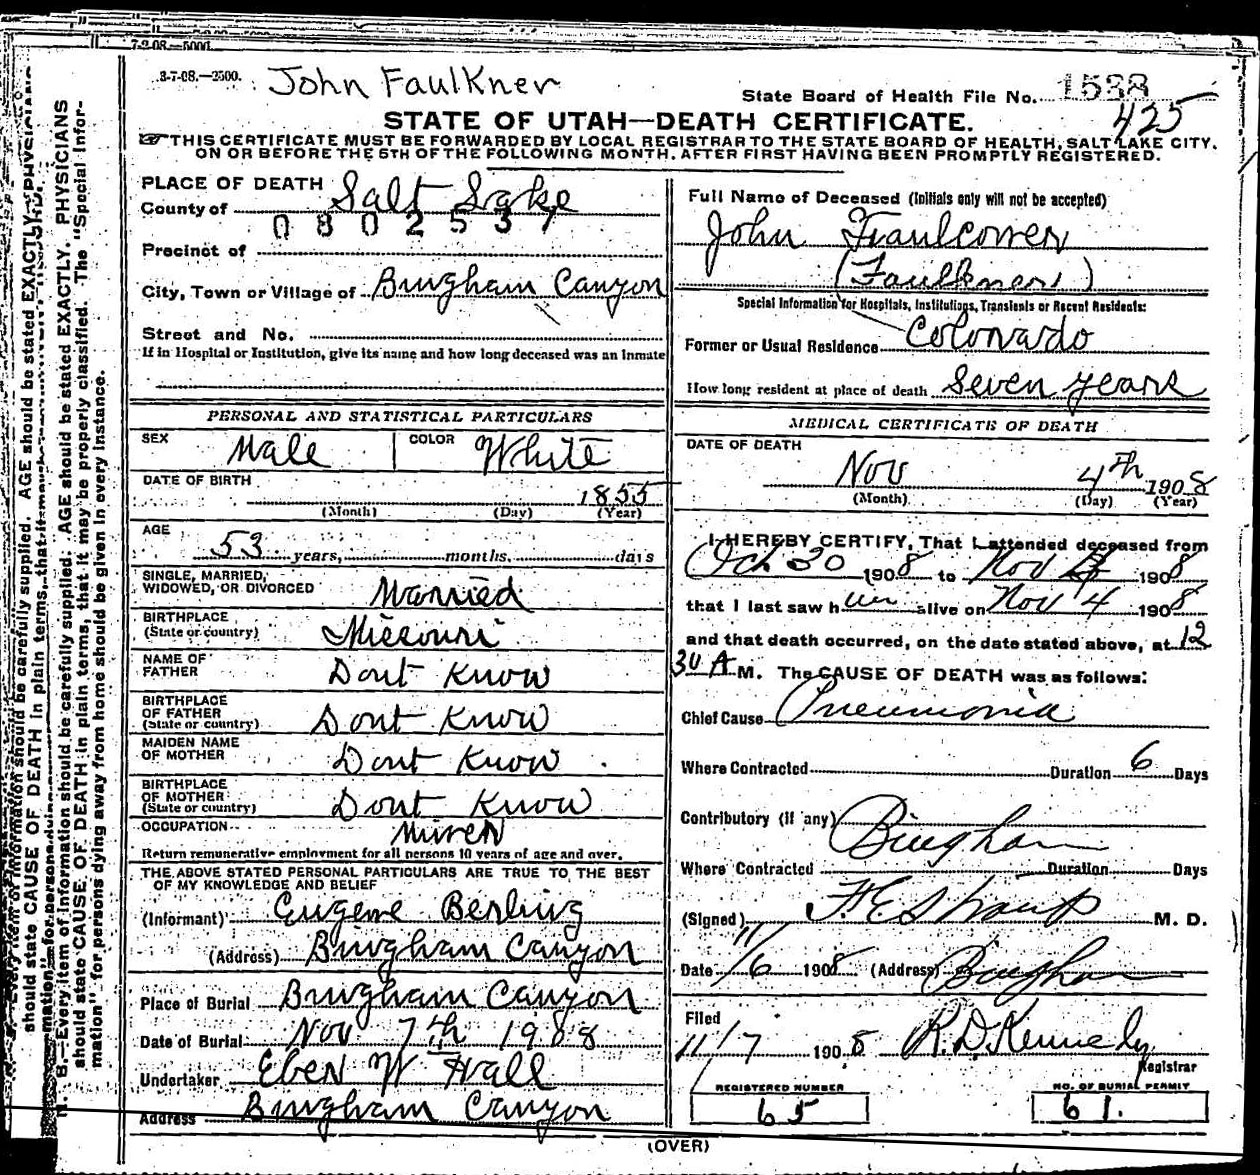 7-2-08.—5000.
3-7-08.—2500.
John Faulkner
State Board of Health File No. 1588
425
STATE OF UTAH—DEATH CERTIFICATE.
☞ THIS CERTIFICATE MUST BE FORWARDED BY LOCAL REGISTRAR TO THE STATE BOARD OF HEALTH, SALT LAKE CITY,
ON OR BEFORE THE 5TH OF THE FOLLOWING MONTH, AFTER FIRST HAVING BEEN PROMPTLY REGISTERED.
PLACE OF DEATH
County of Salt Lake
0802537
Precinct of
City, Town or Village of Bingham Canyon
Street and No.
If in Hospital or Institution, give its name and how long deceased was an inmate
PERSONAL AND STATISTICAL PARTICULARS
SEX Male COLOR White
DATE OF BIRTH 1855
(Month) (Day) (Year)
AGE
53 years, months, days
SINGLE, MARRIED,
WIDOWED, OR DIVORCED Married
BIRTHPLACE
(State or country) Missouri
NAME OF
FATHER Dont Know
BIRTHPLACE
OF FATHER
(State or country) Dont Know
MAIDEN NAME
OF MOTHER Dont Know
BIRTHPLACE
OF MOTHER
(State or country) Dont Know
OCCUPATION Miner
Return remunerative employment for all persons 10 years of age and over.
THE ABOVE STATED PERSONAL PARTICULARS ARE TRUE TO THE BEST
OF MY KNOWLEDGE AND BELIEF
(Informant) Eugene Berling
(Address) Bingham Canyon
Place of Burial Bingham Canyon
Date of Burial Nov 7th 1988
Undertaker Eber W Hall
Address Bingham Canyon
Full Name of Deceased (Initials only will not be accepted)
John Fraulconer
(Faulkner)
Special Information for Hospitals, Institutions, Transients or Recent Residents:
Former or Usual Residence Colorado
How long resident at place of death Seven years
MEDICAL CERTIFICATE OF DEATH
DATE OF DEATH
Nov 4th 1908
(Month) (Day) (Year)
I HEREBY CERTIFY, That I attended deceased from
Oct 30 1908 to Nov 4 1908
that I last saw him alive on Nov 4 1908
and that death occurred, on the date stated above, at 12
30 A M. The CAUSE OF DEATH was as follows:
Chief Cause Pneumonia
Where Contracted Duration 6 Days
Contributory (if any)
Bingham
Where Contracted Duration Days
(Signed) F. E. Straup M. D.
Date 11/6 1908 (Address) Bingham
Filed
11/7 1908 R.D. Kennedy
Registrar
REGISTERED NUMBER NO. OF BURIAL PERMIT
65 61.
(OVER)
N. B.—Every item of information should be carefully supplied. AGE should be stated EXACTLY. PHYSICIANS
should state CAUSE OF DEATH in plain terms, that it may be properly classified. The "Special Infor-
mation" for persons dying away from home should be given in every instance.